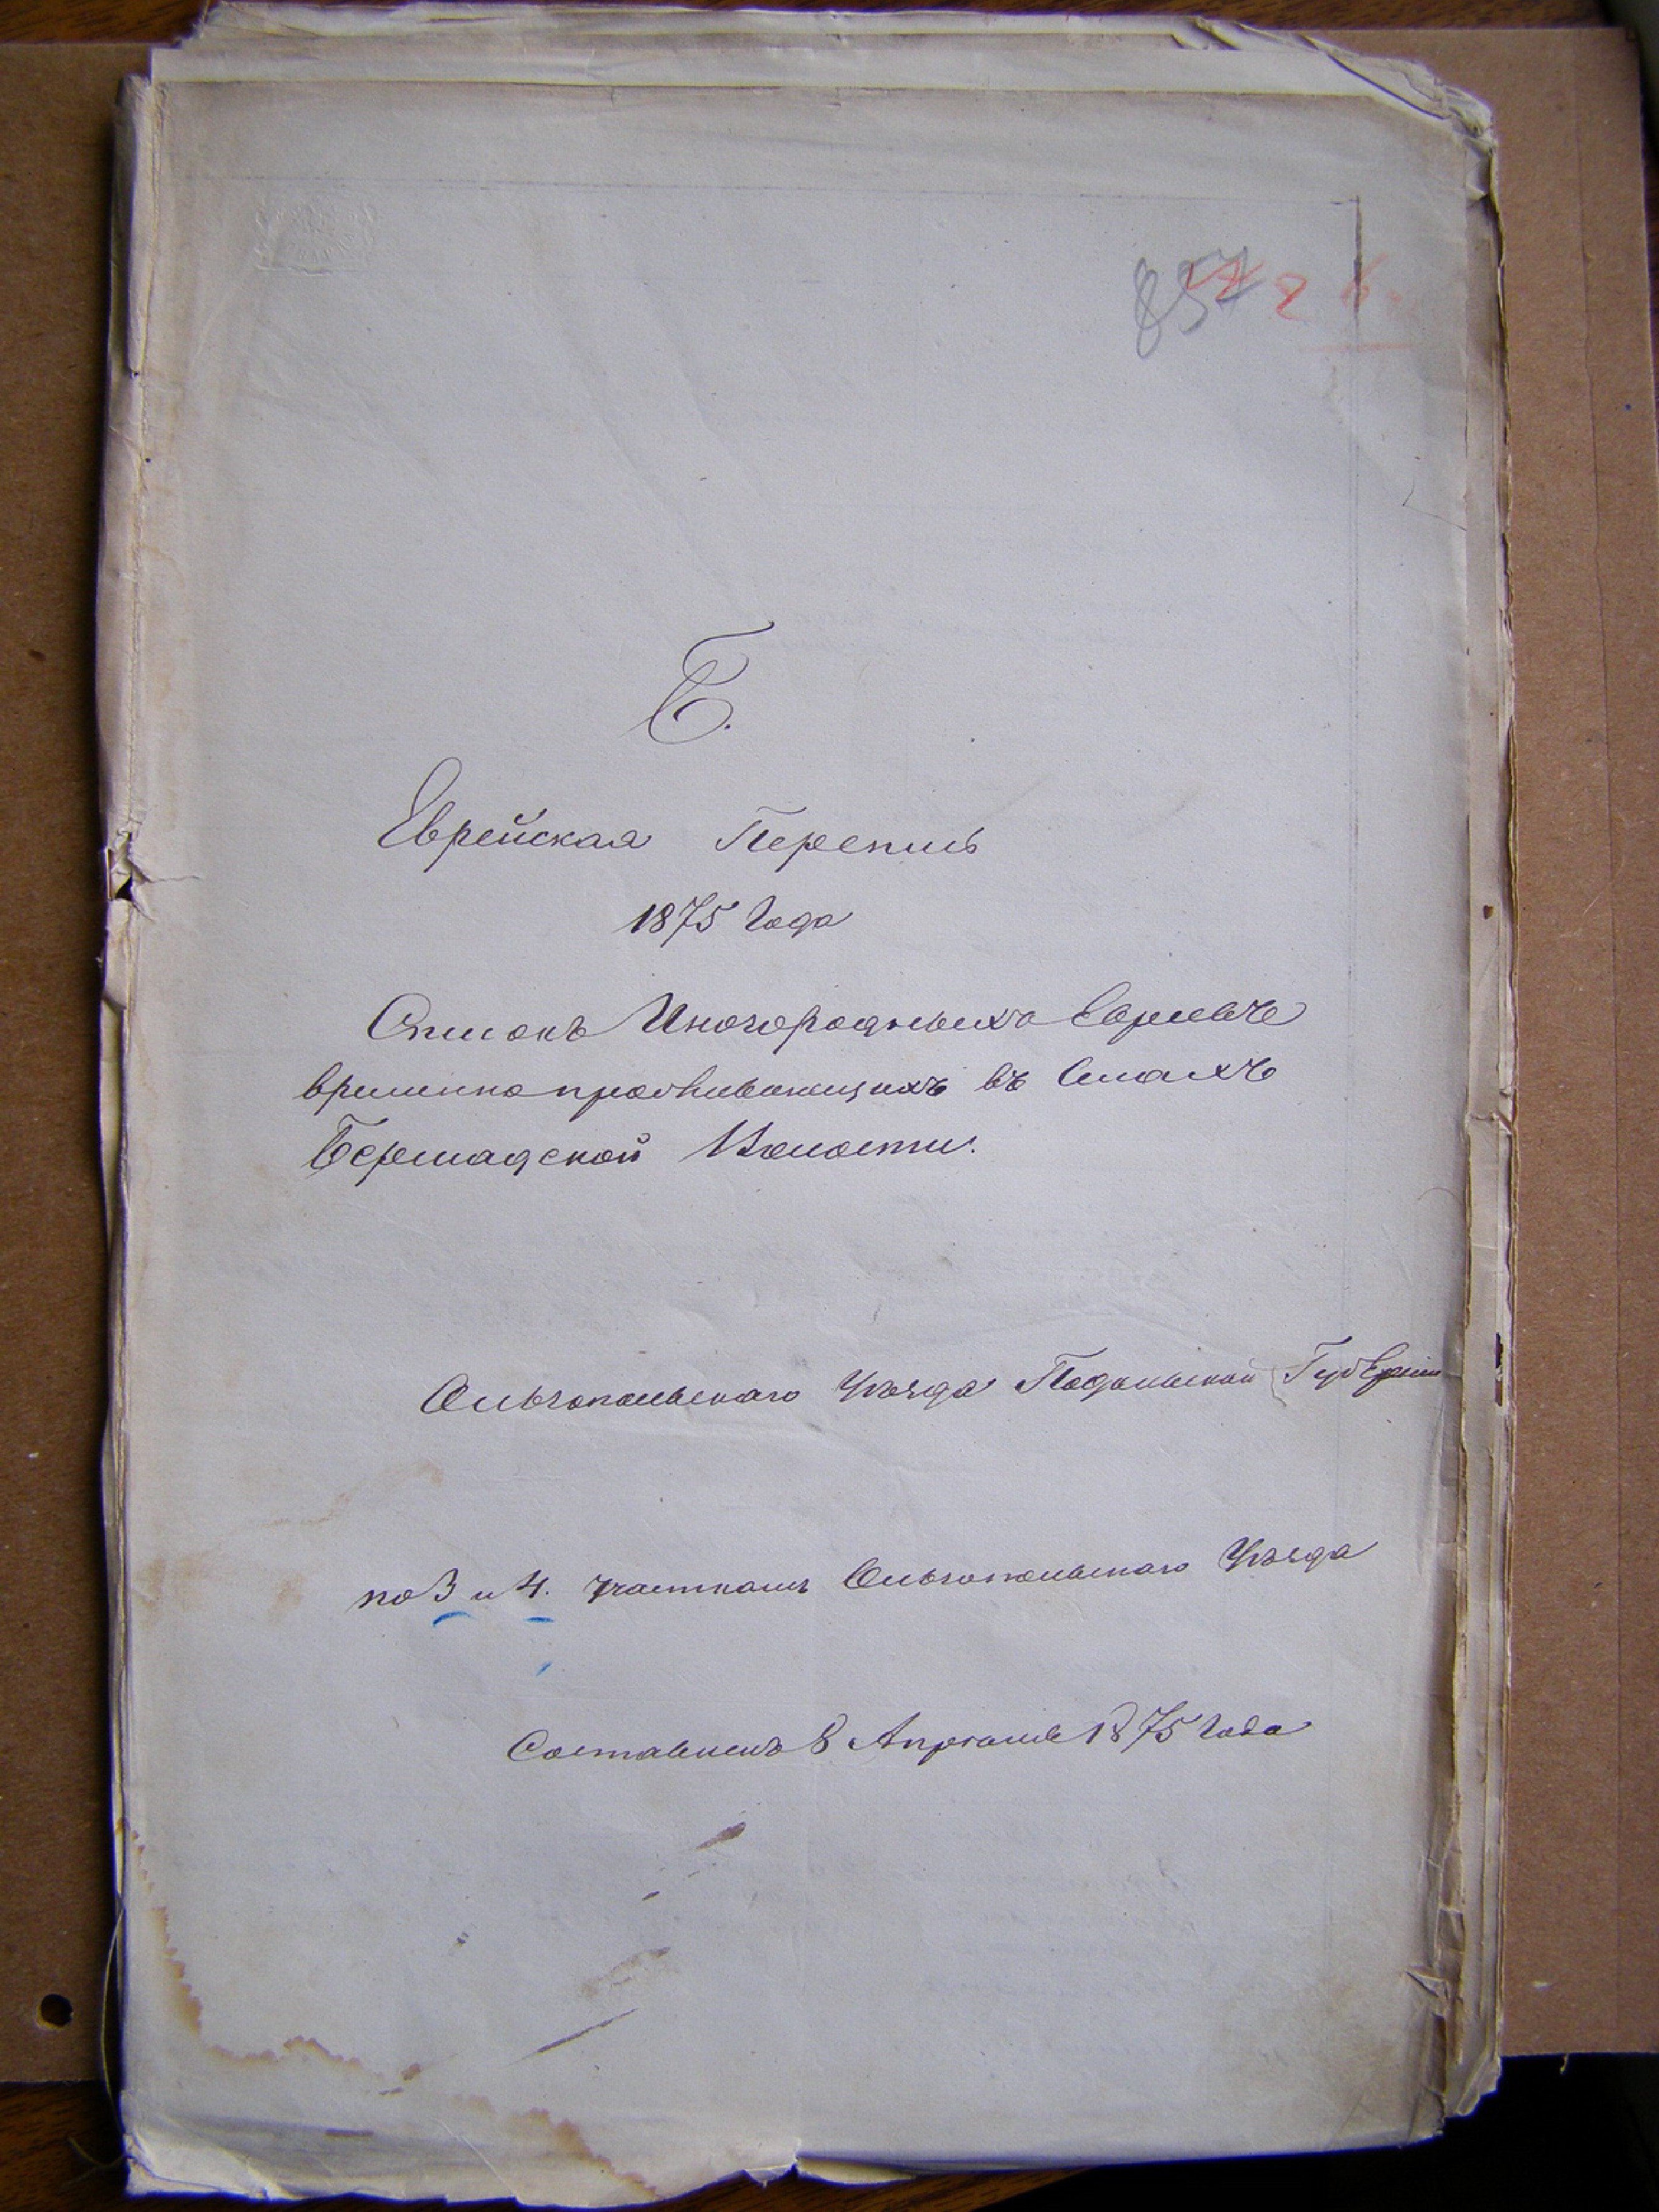 857
Б.
Еврейская Перепись
1875 Года
Списокъ Иногородныхъ Евреевъ
временно проживающихъ въ Селахъ
Бершадской Волости.
Ольгопольскаго Уѣзда Подольской Губерніи
по 3 и 4. участкамъ Ольгопольскаго Уѣзда
Составленъ 8 Апрѣля 1875 Года